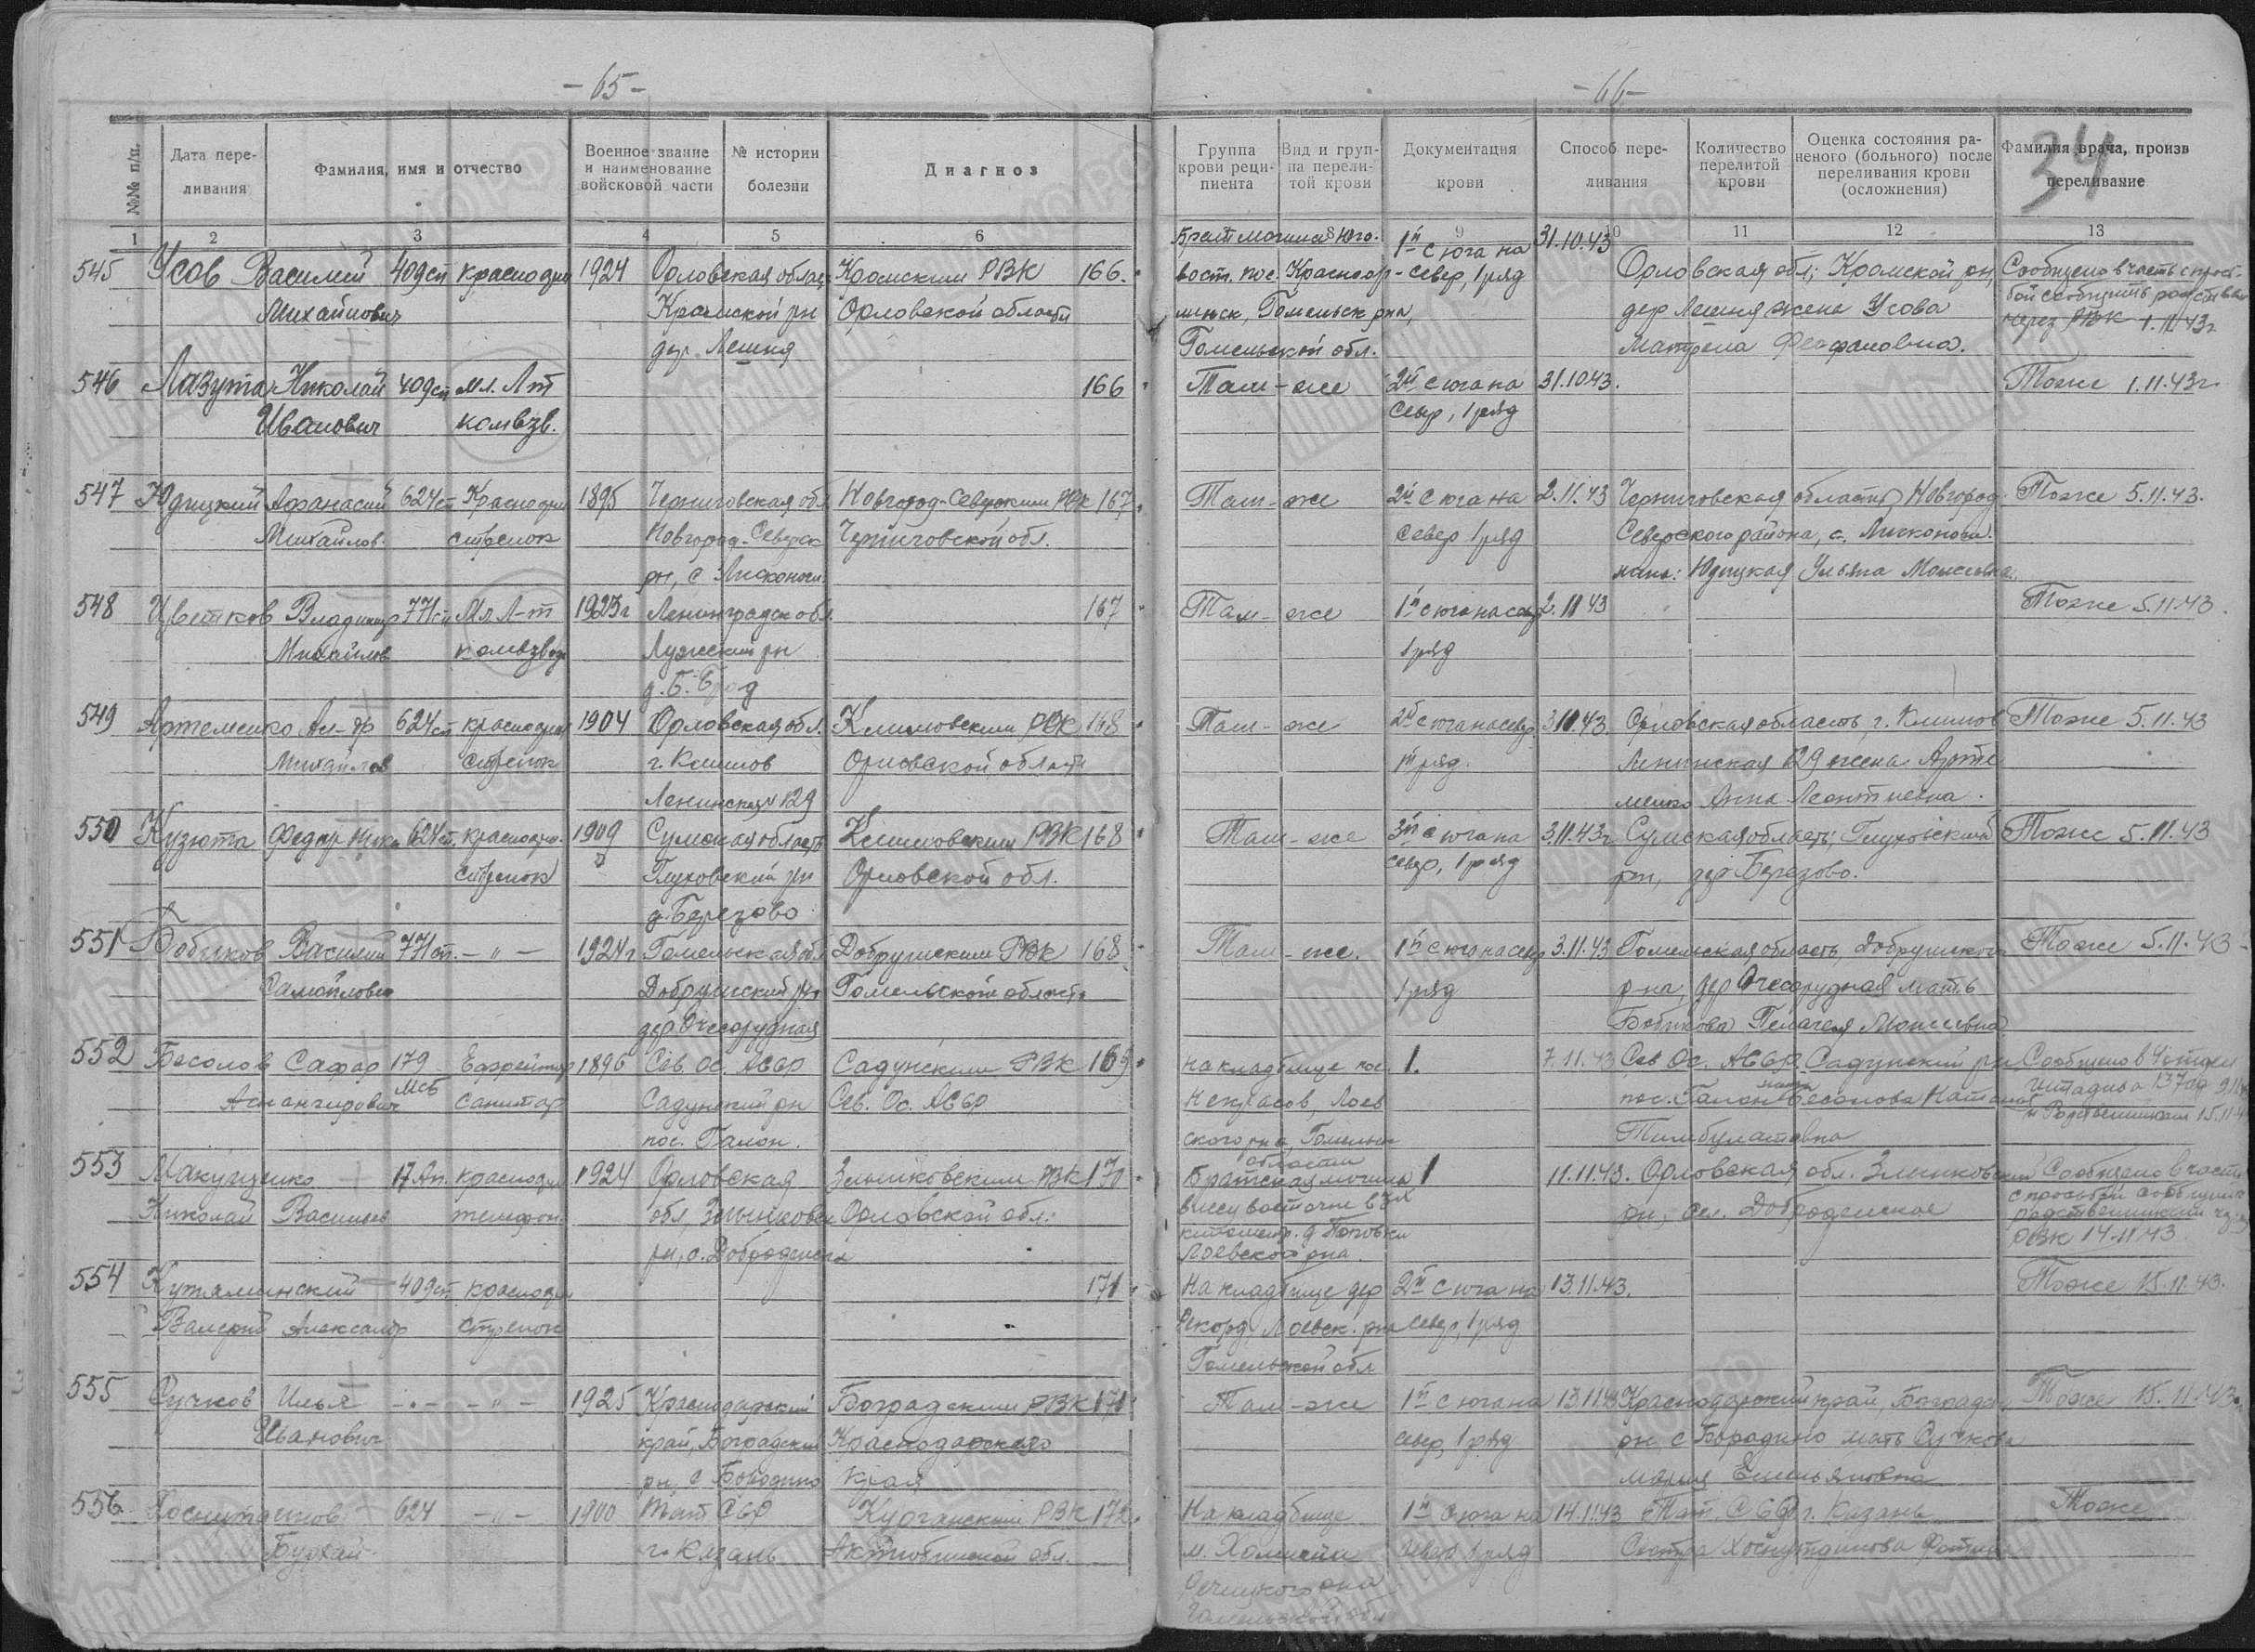 - 65 -
№№ п/п.
Дата пере-
ливания
Фамилия, имя и отчество
Военное звание
и наименование
войсковой части
№ истории
болезни
Диагноз
1 2 3 4 5 6
545 Усов Василий 409сп красноарм 1924 Орловская област Кромским РВК 166.
Михайлович Кромской рн Орловской области
дер. Лешня
546 Лазута Николай 409сп мл. Л-т 166
Иванович комвзв.
547 Юдицкий Афанасий 624сп Красноарм 1895 Черниговская обл Новгород-Северским РВК 167
Михайлов. стрелок Новгород-Северск Черниговской обл.
рн, с Лисконоги
548 Цветков Владимир 771сп Мл. Л-т 1923г Ленинградск обл. 167
Михайлов комвзвода Лужский рн
д. Б. Брод
549 Артеменко Ал-др 624сп красноарм 1904 Орловская обл. Климовским РВК 168
Михайлов стрелок г. Климов Орловской област
Ленинская 129
550 Кузюта Федор 624сп. красноарм. 1909 Сумская область Климовским РВК 168
стрелок Глуховский рн Орловской обл.
д. Березово
551 Бобыков Василий 771сп. - " - 1924г Гомельская обл Добрушским РВК 168
Самойлович Добрушский рн Гомельской област
дер
552 Бесолов Сафар 179 Ефрейтор 1896 Сев. Ос. АССР Садунским РВК 169
мсб санитар Садунский рн Сев. Ос. АССР
пос. Галон.
553 17 Ап. красноарм 1924 Орловская Злынковским РВК 170
Николай Васильев телефон. обл, Злынковск Орловской обл.
рн, с. Добродеевка
554 409сп красноарм 171
Валерий Александр стрелок
555 Сучков Илья - " - - " - 1925 Краснодарский Боградским РВК 171
Иванович край, Боградский Краснодарского
рн, с Бородино края
556 624 - " - 1900 Тат ССР Курганским РВК 172
г. Казань Актюбинской обл.
- 66 -
34
Группа
крови реци-
пиента
Вид и груп-
па перели-
той крови
Документация
крови
Способ пере-
ливания
Количество
перелитой
крови
Оценка состояния ра-
неного (больного) после
переливания крови
(осложнения)
Фамилия врача, произв
переливание
8 9 10 11 12 13
Брат могила Юго- 1й с юга на 31.10.43
вост. пос. Красноар- север, 1 ряд Орловская обл; Кромской рн, Сообщено в часть с прось-
мейск, Гомельск рна, дер Лешня жена Усова бой сообщить родствен
Гомельской обл. Матрена Феофановна. через РВК 1.11.43г
Там-же 2й с юга на 31.10.43. Тоже 1.11.43г
север, 1 ряд
Там-же 2й с юга на 2.11.43 Черниговская область, Новгород- Тоже 5.11.43.
север 1 ряд Северского района, с. Лисконоги
Юдицкая Ульяна Моисеевна.
Там-же 1й с юга на север 2.11 43 Тоже 5.11.43.
1 ряд
Там-же 2й с юга на север 3.11.43 Орловская область, г. Климов Тоже 5.11.43
1й ряд. Ленинская 129 жена Арте
менко Анна Леонтиевна.
Там-же 3й с юга на 3.11.43г Сумская область, Глуховский Тоже 5.11.43
север, 1 ряд рн, дер Березово.
Там-же. 1й с юга на север 3.11.43 Гомельская область, Добрушского Тоже 5.11.43
1 ряд рна, дер мать
Бобыкова Пелагея Моисеевна
На кладбище пос. 1. 7.11.43 Сев Ос. АССР. Садунский рн Сообщено в
Некрасов, Лоев пос. Галон Бесолова
ского рна, Гомельск Родственникам 15.11.
области Тимбулатовна
Братская могила 1 11.11.43. Орловская обл. Злынковский Сообщено в часть
восточн в рн, сел. с просьбой сообщить
километр. д родственникам через
Лоевской рна. РВК 14.11.43
На кладбище дер 2й с юга на 13.11.43. Тоже 15.11.43.
Рекорд, Лоевск. рна север, 1 ряд
Гомельской обл
Там-же 1й с юга на 13.11.43 Краснодарский край, Боградск Тоже 15.11.43
север, 1 ряд рн, с Бородино мать Сучкова
Мария Емельяновна
На кладбище 1й с юга на 14.11.43 Тат. ССР г. Казань Тоже
м. север 1 ряд Сестра Хоснутдинова
Речицкого рна
Гомельской обл